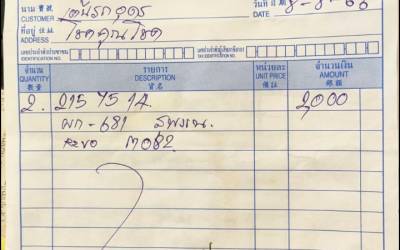 นาม 寶號 CUSTOMER เต้นรถอุดร วันที่ 日期 DATE 8-8-66
ที่อยู่ 住址 ADDRESS โชคคูณโชค
เลขประจำตัวประชาชน IDENTIFICATION NO. เลขประจำตัวผู้เสียภาษีอากร TAX IDENTIFICATION NO.
จำนวน QUANTITY 數量 รายการ DESCRIPTION 貨名 หน่วยละ UNIT PRICE 價목 จำนวนเงิน AMOUNT 銀碼
2. 215 75 14. 2,000
ผก-681
REVO 3082